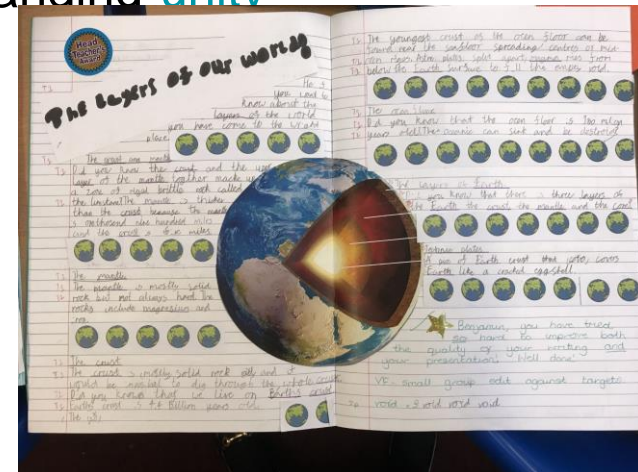 anding unity
Head
Teacher's
Award
The Layers of our world
Hi If
you want to
know about the
layers of the world
you have come to the
place
The crust and mantle
Did you know the crust and the upper
layer of the mantle together make up
a zone of rigid brittle rock called
the The mantle is thicker
than the crust because the mantle
is one thousand nine hundred miles
and the crust is miles
The mantle
The mantle is mostly solid
rock but not always hard The
rocks include magnesium and
iron
The crust
The crust is mostly solid rock and it
would be to dig through the whole crust
Did you know that we live on Earth's crust
Earth's crust is 4.4 Billion years old
The youngest crust of the ocen floor can be
found near the seafloor spreading centres of mid
As the plates split apart, magma rises from
below the Earth surface to fill the empty void.
The ocen floor
Did you know that the ocen floor is 180 milion
years old The oceanic can sink and be destroyed
layers of Earth
you know that there three layers of
the Earth the crust the mantle and the core
plates
Earth crust that covers
Earth like a eggshell
Benjamin, you have tried
so hard to improve both
the quality of your writing and
your presentation! Well done!
VF- small group edit against targets
void void void void